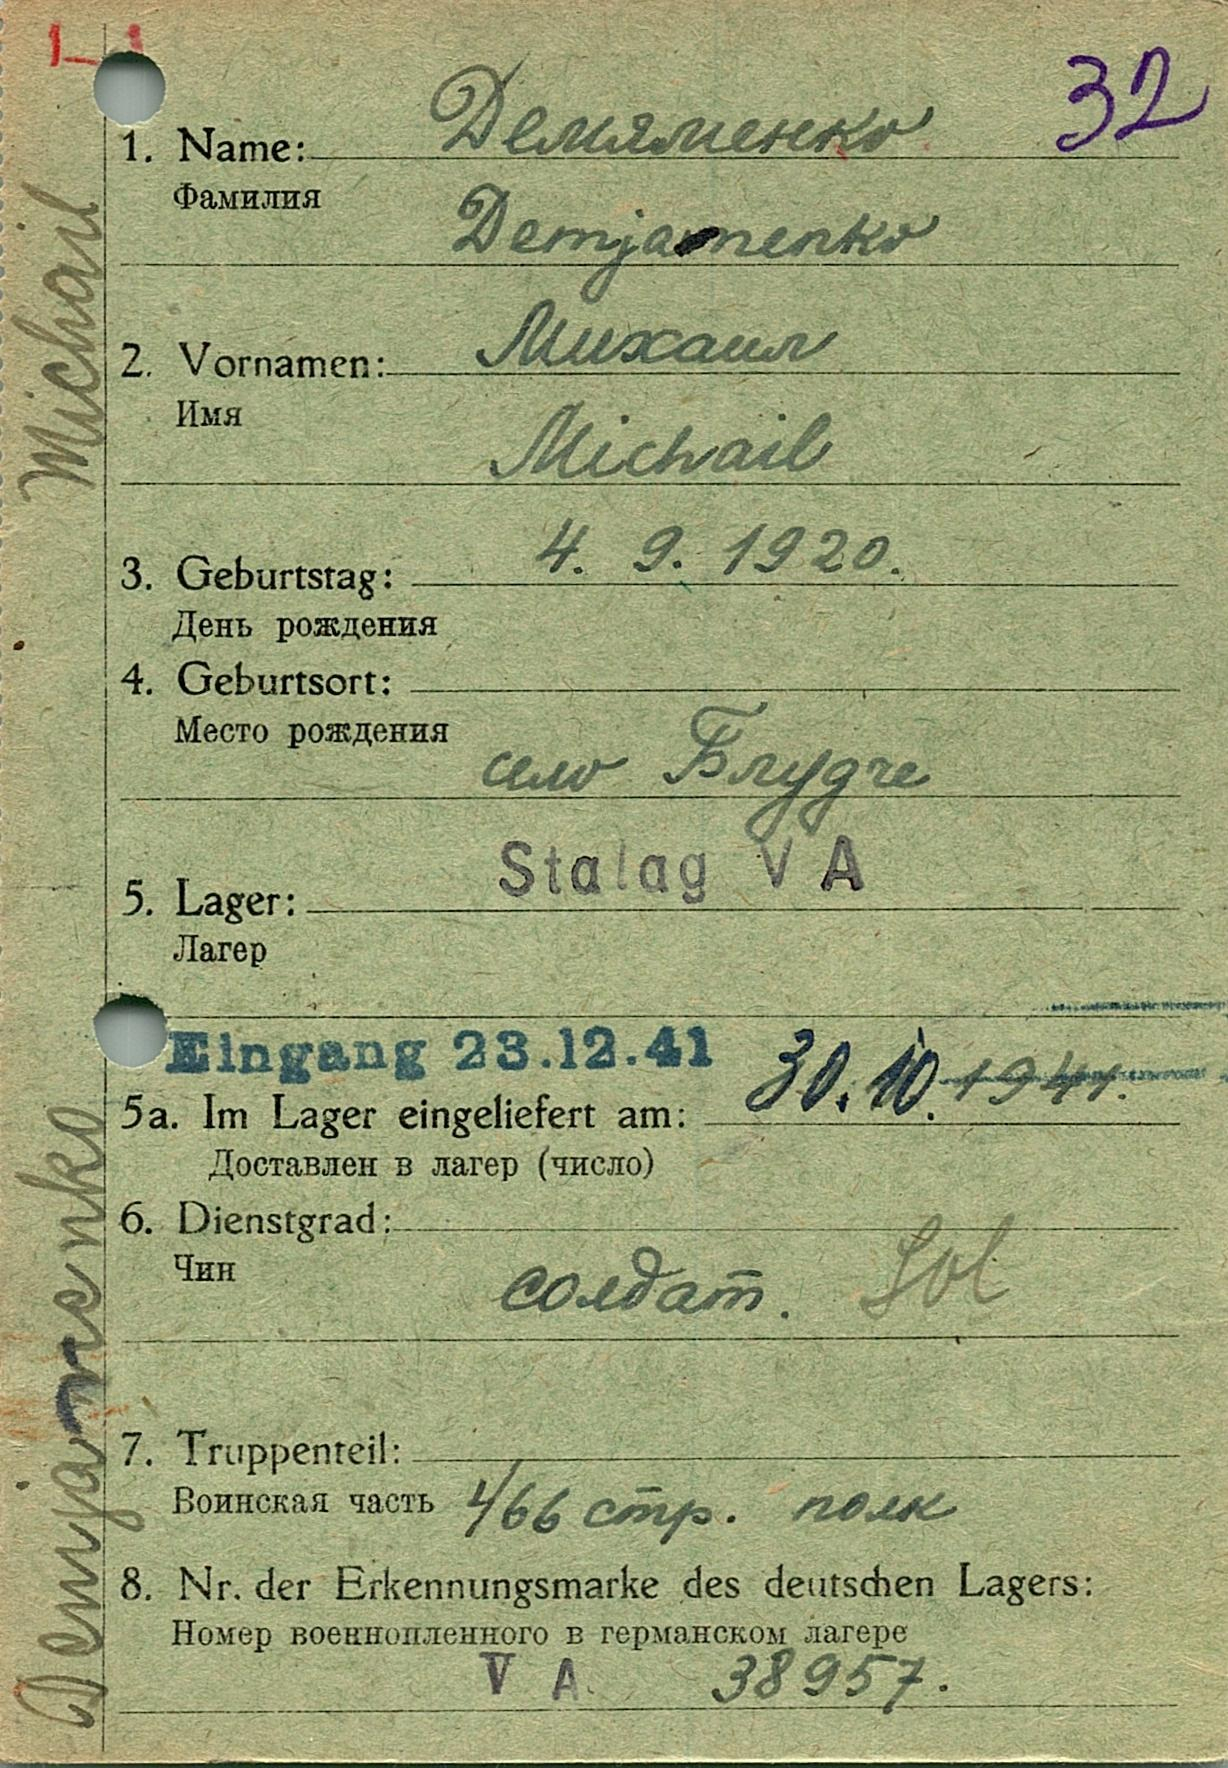 32
1. Name: Демяменко
Фамилия
Demjamenko
2. Vornamen: Михаил
Имя
Michail
3. Geburtstag: 4. 9. 1920.
День рождения
4. Geburtsort:
Место рождения
село Блудче
Stalag V A
5. Lager:
Лагер
Eingang 23.12.41
5a. Im Lager eingeliefert am: 30. 10. 1941.
Доставлен в лагер (число)
6. Dienstgrad:
Чин
солдат. Sol
7. Truppenteil:
Воинская часть 4/66 стр. полк
8. Nr. der Erkennungsmarke des deutschen Lagers:
Номер военнопленного в германском лагере
V A 38957.
Demjamenko Michail